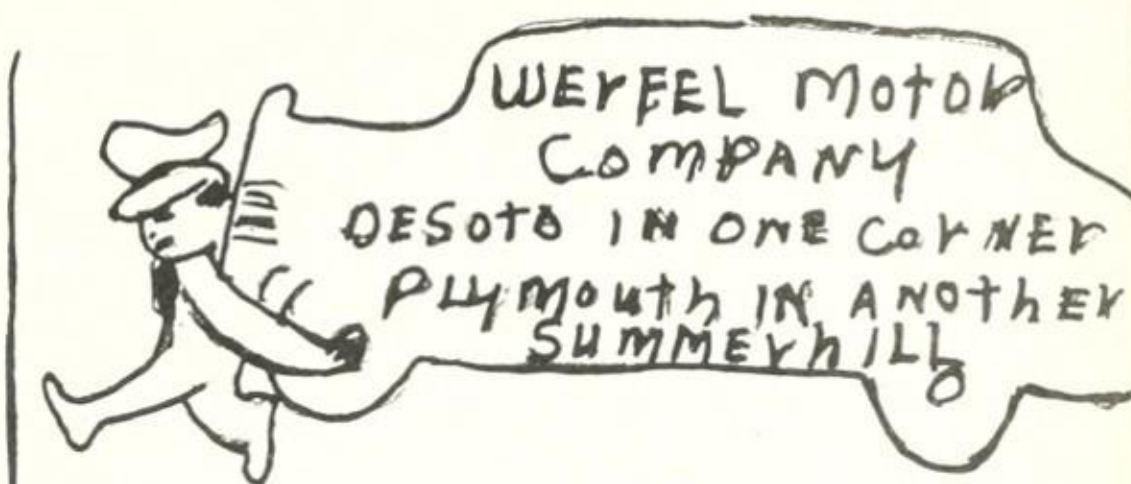 WErFEL MOtOr
COMPANY
DESOtO IN ONE COrNEr
PLYMOUth IN ANOthEr
SUMMErhILL